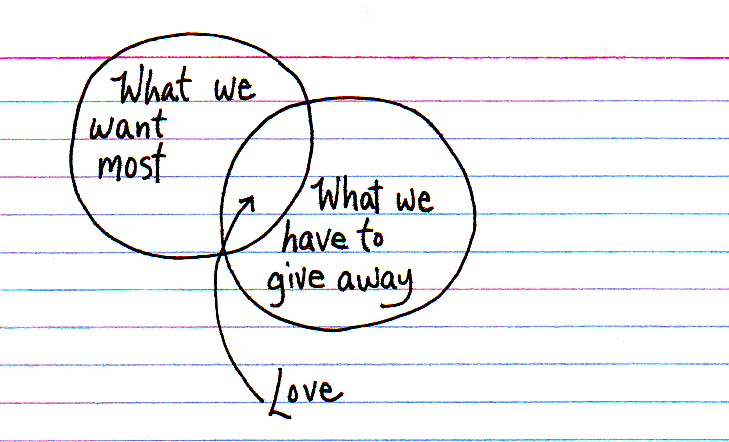 What we
want
most
What we
have to
give away
Love